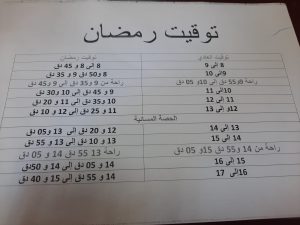 توقيت رمضان
التوقيت العادي توقيت رمضان
8 الى 9 8 الى 8 و 45 دق
9الى 10 8 و50 دق 9 و 35 دق
راحة من 9و55 دق الى 10و 05 دق راحة من 9 و 35 دق الى 9 و45 دق
10الى 11 9 و 45 دق الى 10 و30 دق
11 الى 12 10 و35 دق الى 11 و 20 دق
12و الى 13 11 و 25 دق الى 12 و 10 دق
الحصة المسائية
13 الى 14 12 و 20 دق الى 13 و05 دق
14 الى 15 13 و 10 دق الى 13 و 55 دق
راحة من 14 و55 دق 15و 05 دق راحة 13 55 دق 14 و 05 دق
15 الى 16 14 و 05 دق الى 14 و 50دق
16الى 17 14 و 55 دق الى 15 و 40 دق